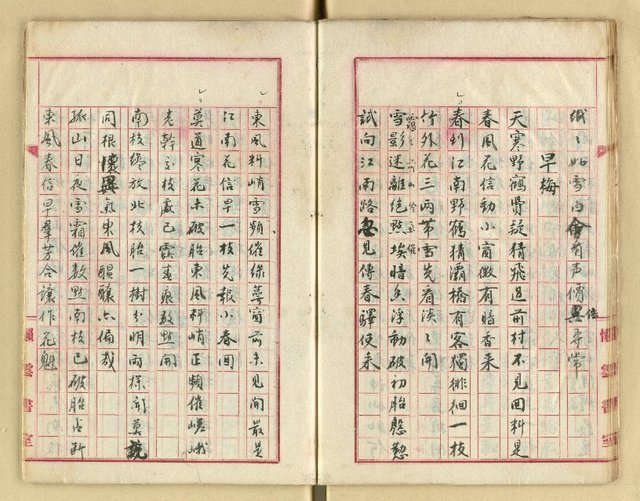 早梅
天寒野鶴費疑猜飛過前村不見回料是
春風花信動小窗微有暗香來
春到江南野鶴猜灞橋有客獨徘徊一枝
竹外花三兩帶雪先看淡〻開
雪影迷離絕點埃暗香浮動破初胎慇懃
試向江南路安見傳春驛使來
東風料峭雪頻催綠萼窗前未見開最是
江南花信早一枝先報小春回
莫道寒花未破胎東風料峭正頻催嵯峨
老幹交枝處已露春痕數點開
南枝纔放北枝胎一樹分明兩樣開莫說
同根懷異氣東風醞釀六偏裁
孤山日夜雪霜催數點南枝已破胎占斷
東風春信早羣芳合讓作花魁
懶雲書室